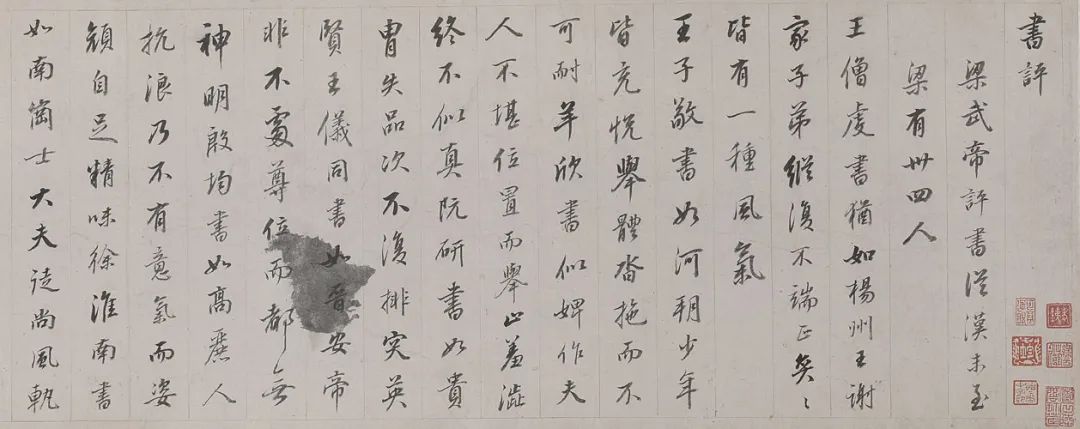 書評
梁武帝評書從漢末至
梁有卅四人
王僧虔書猶如楊州王謝
家子弟縱復不端正奕〻
皆有一種風氣
王子敬書如河朔少年
皆充悦舉體沓拖而不
可耐羊欣書似婢作夫
人不堪位置而舉止羞澁
終不似真阮研書如貴
胄失品次不復排突英
賢王儀同書如晉安帝
非不處尊位而都無
神明殷均書如高麗人
抗浪乃不有意氣而姿
顔自足精味徐淮南書
如南崗士大夫徒尚風軌